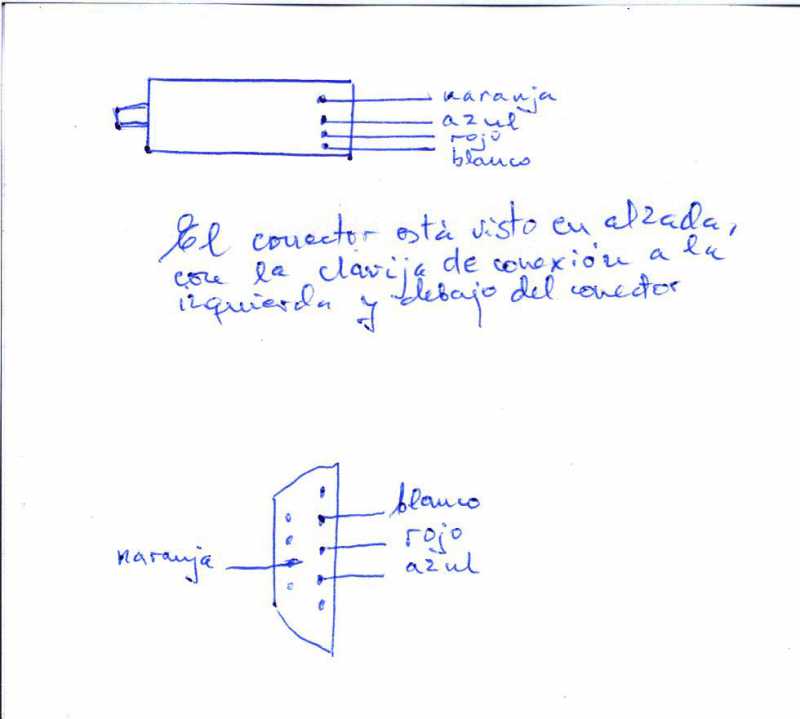 naranja
azul
rojo
blanco
El conector está visto en alzada,
con la clavija de conexión a la
izquierda y debajo del conector
blanco
rojo
naranja
azul